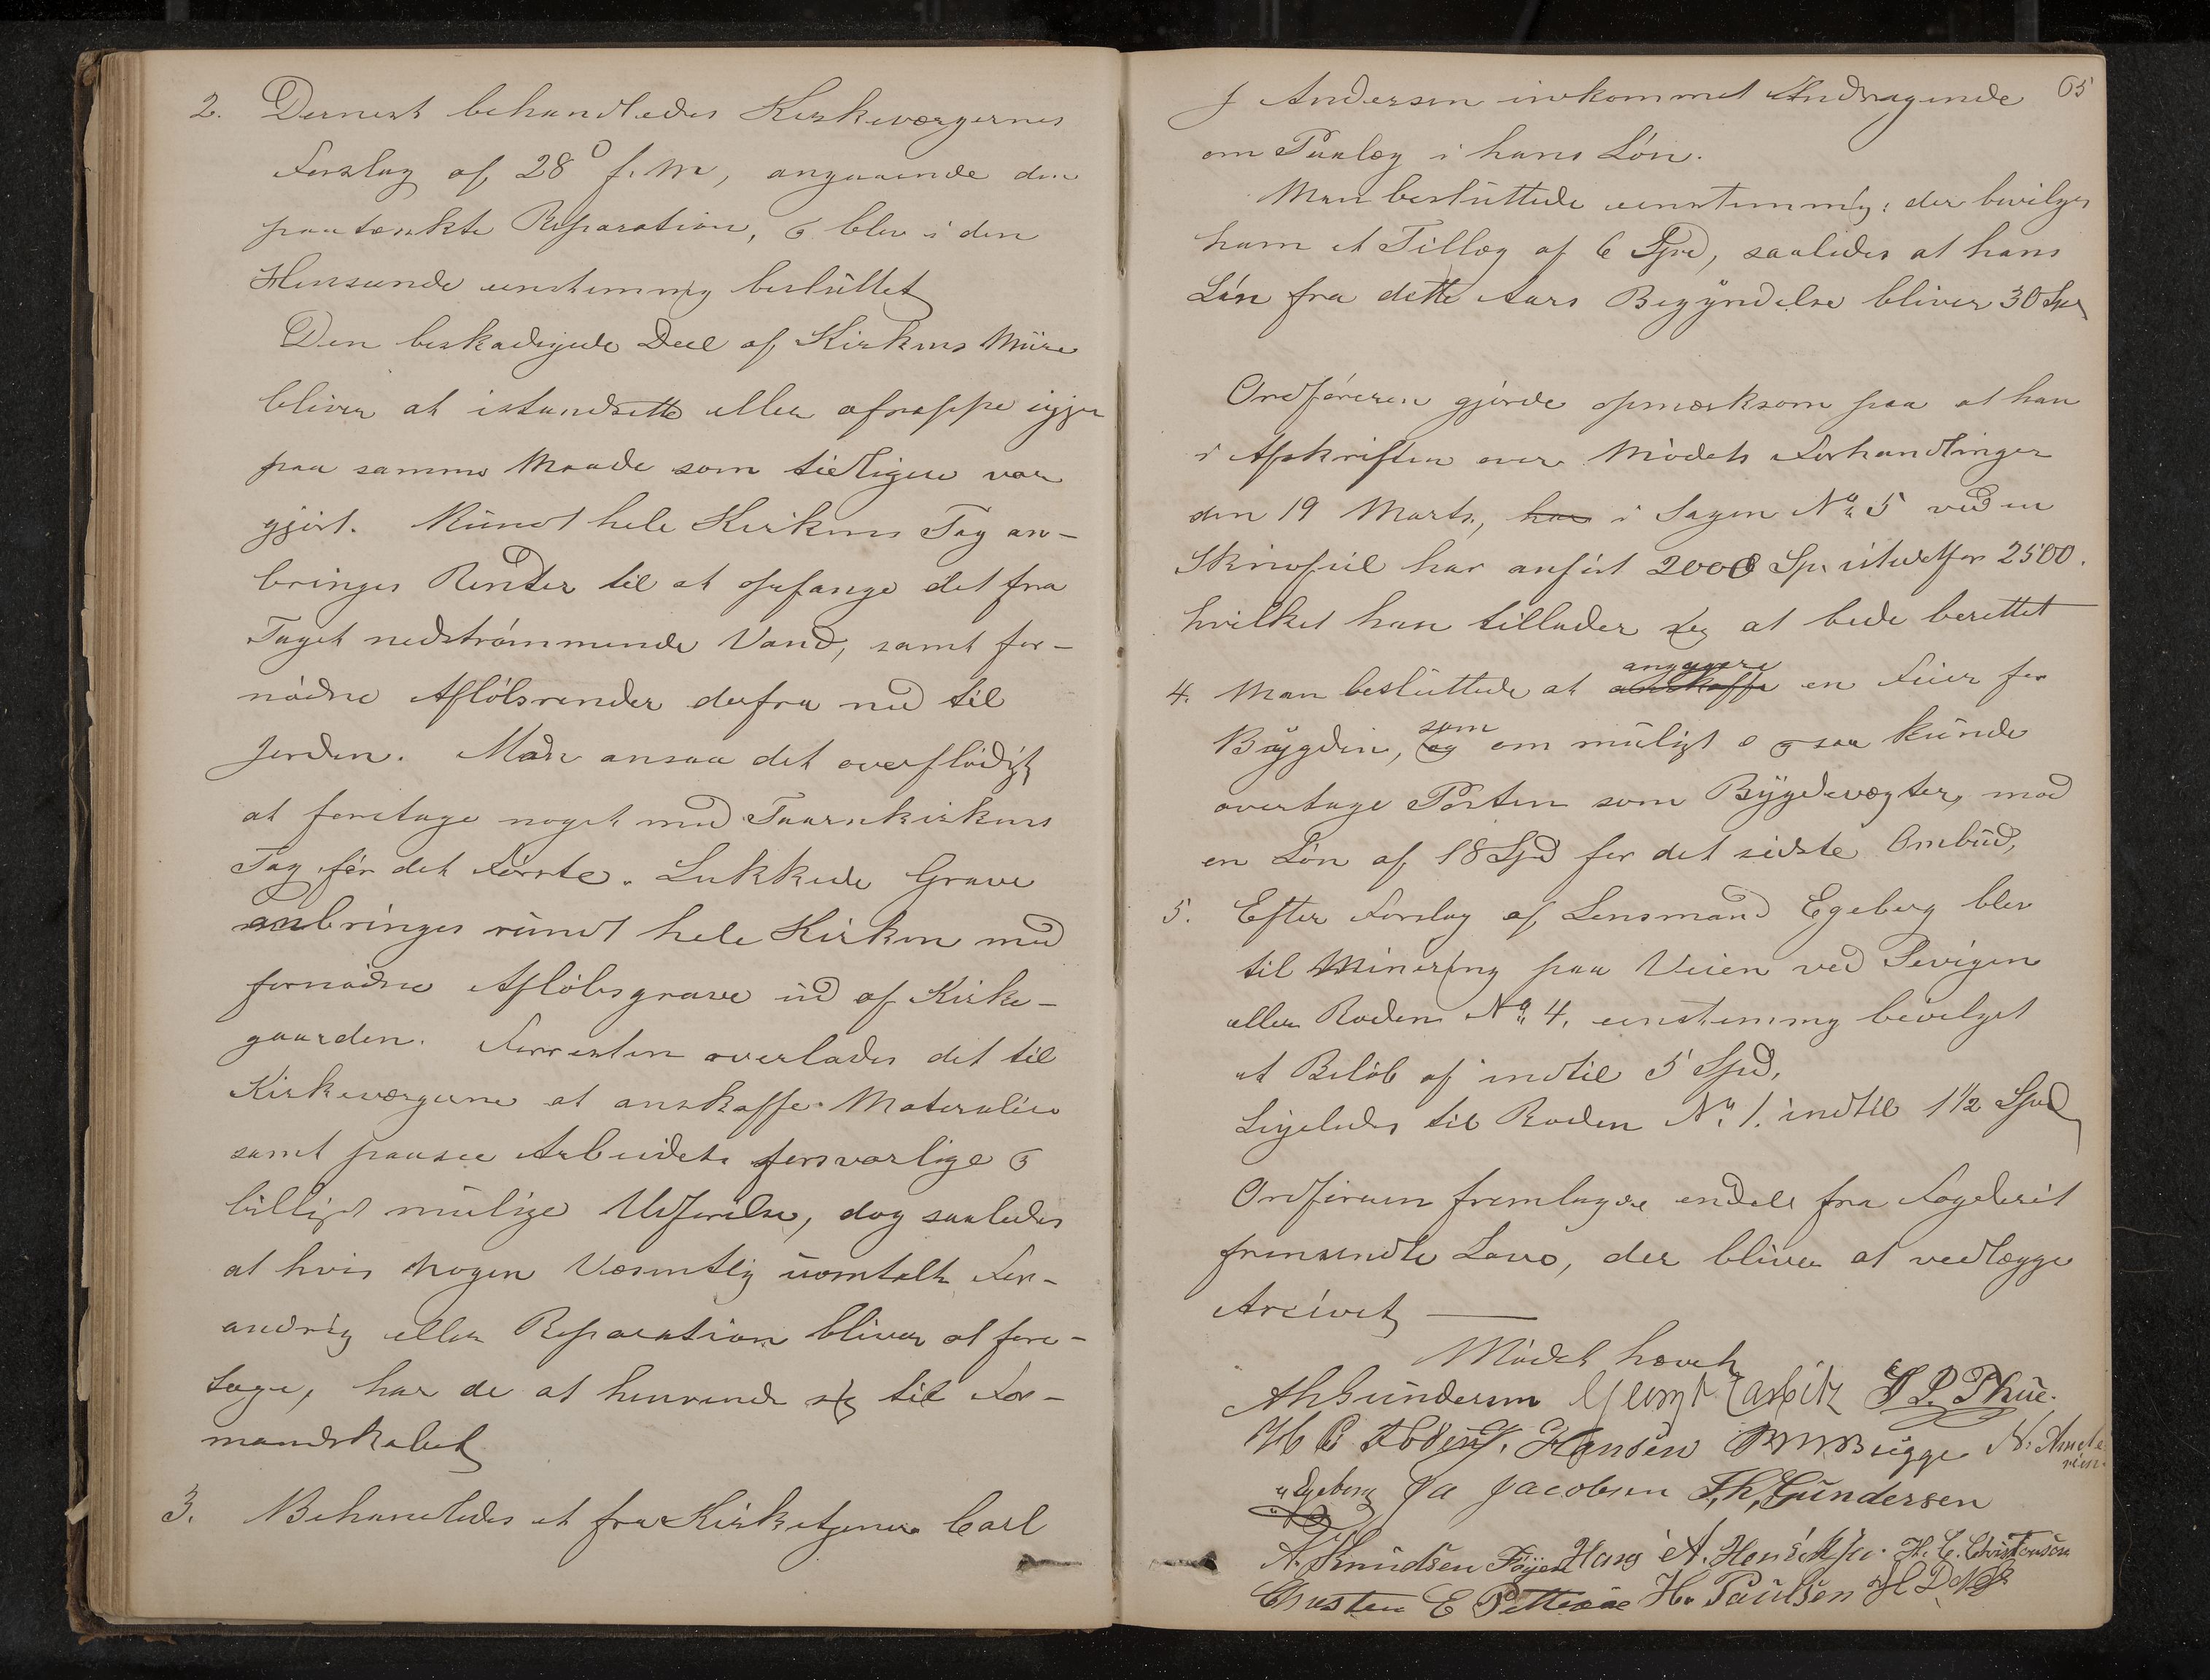 2. Dernest behandledes Kirkeværgernes
Forslag af 28° f. M, angaaende den
paatænkte Reparation, & blev i den
Henseende eenstemmig besluttet
Den beskadigede Deel af Kirkens Mure
bliver at istandsette eller afrappe igjen
paa samme Maade som tidligere var
gjort. Rundt hele Kirkens Tag an-
bringes Render til at opfange det fra
Taget nedstrømmende Vand, samt for-
nødne Afløbsrender derfra ned til
Jorden. Man ansaa det overflødigt
at foretage noget med Taarnkirkens
Tag før det første. Lukkede Grave
anbringes rundt hele Kirken med
fornødne Afløbsgrave ud af Kirke-
gaarden. Forresten overlades det til
Kirkeværgerne at anskaffe Materialier
samt paasee Arbeidets forsvarlige &
billigst mulige Udførelse, dog saaledes
at hvis nogen Væsentlig uomtalt For-
andrig eller Reparation bliver at fore-
tage, har de at henvende sig til For-
mandskabet
3. Behandledes et fra Kirketjener Carl
65
J Andersen inkommet Andragende
om Paalæg i hans Løn.
Man besluttede eenstemmig: der bevilges
ham et Tillæg af 6 Spd, saaledes at hans
Løn fra dette Aars Begyndelse bliver 30 Spd
Ordføreren gjorde opmærksom paa at han
i Afskriften over Mødets Forhandlinger
den 19 Marts, har i Sagen No 5 ved en
Skrivfeil har anført 2000 Sp. istedetfor 2500.
hvilket han tillader seg at bede berettet
4. Man besluttede at anskaffe engagere en Feier for
Bygden, og som om muligt ogsaa kunde
overtage Posten som Bygdevægter, mod
en Løn af 18 Spd for det sidste Ombud,
5. Efter Forslag af Lensmand Egeberg blev
til Minering paa Veien ved Sevigen
eller Roden No 4, eenstemmig bevilget
et Beløb af indtil 5 Spd,
Ligeledes til Roden No 1. indtil 1½ Spd
Ordføreren fremlagde endel fra Fogderiet
fremsendte Love, der bliver at vedlægge
Arcivet
Mødet hævet
A H Gundersen Georg P. S P. Thue.
H C Hansen Bugge N.
Egeberg Ja Jacobsen Th, Gundersen
A. Knudsen Føyen Hans A. H. C. Christensen
Christen E H. Paulsen